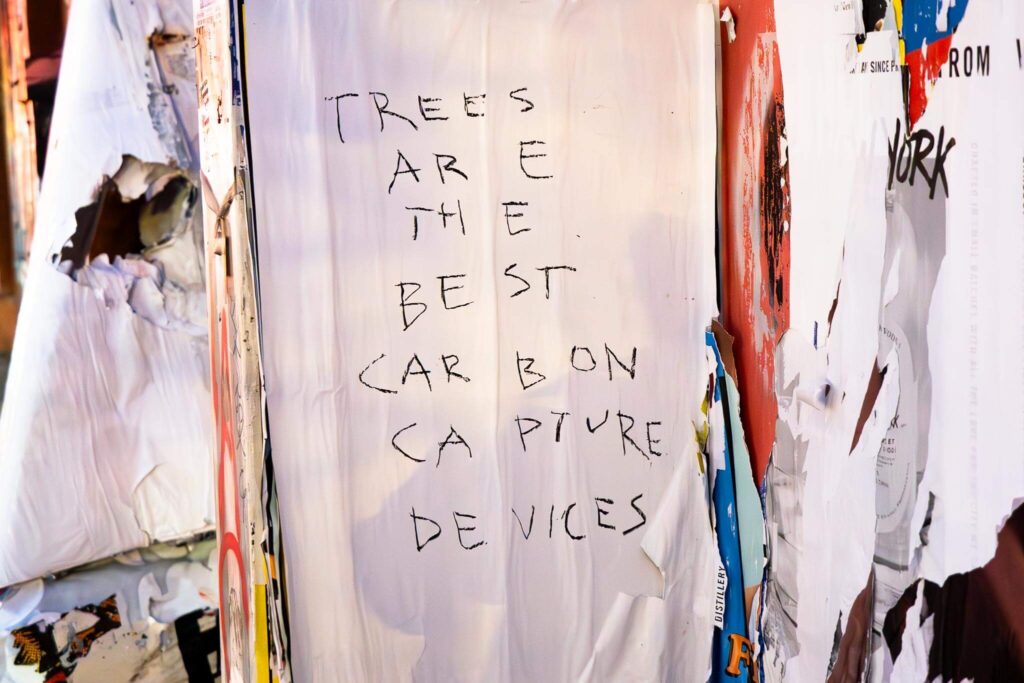 TREES
ARE
THE
BEST
CARBON
CAPTURE
DEVICES
SINCE
FROM
YORK
DISTILLERY